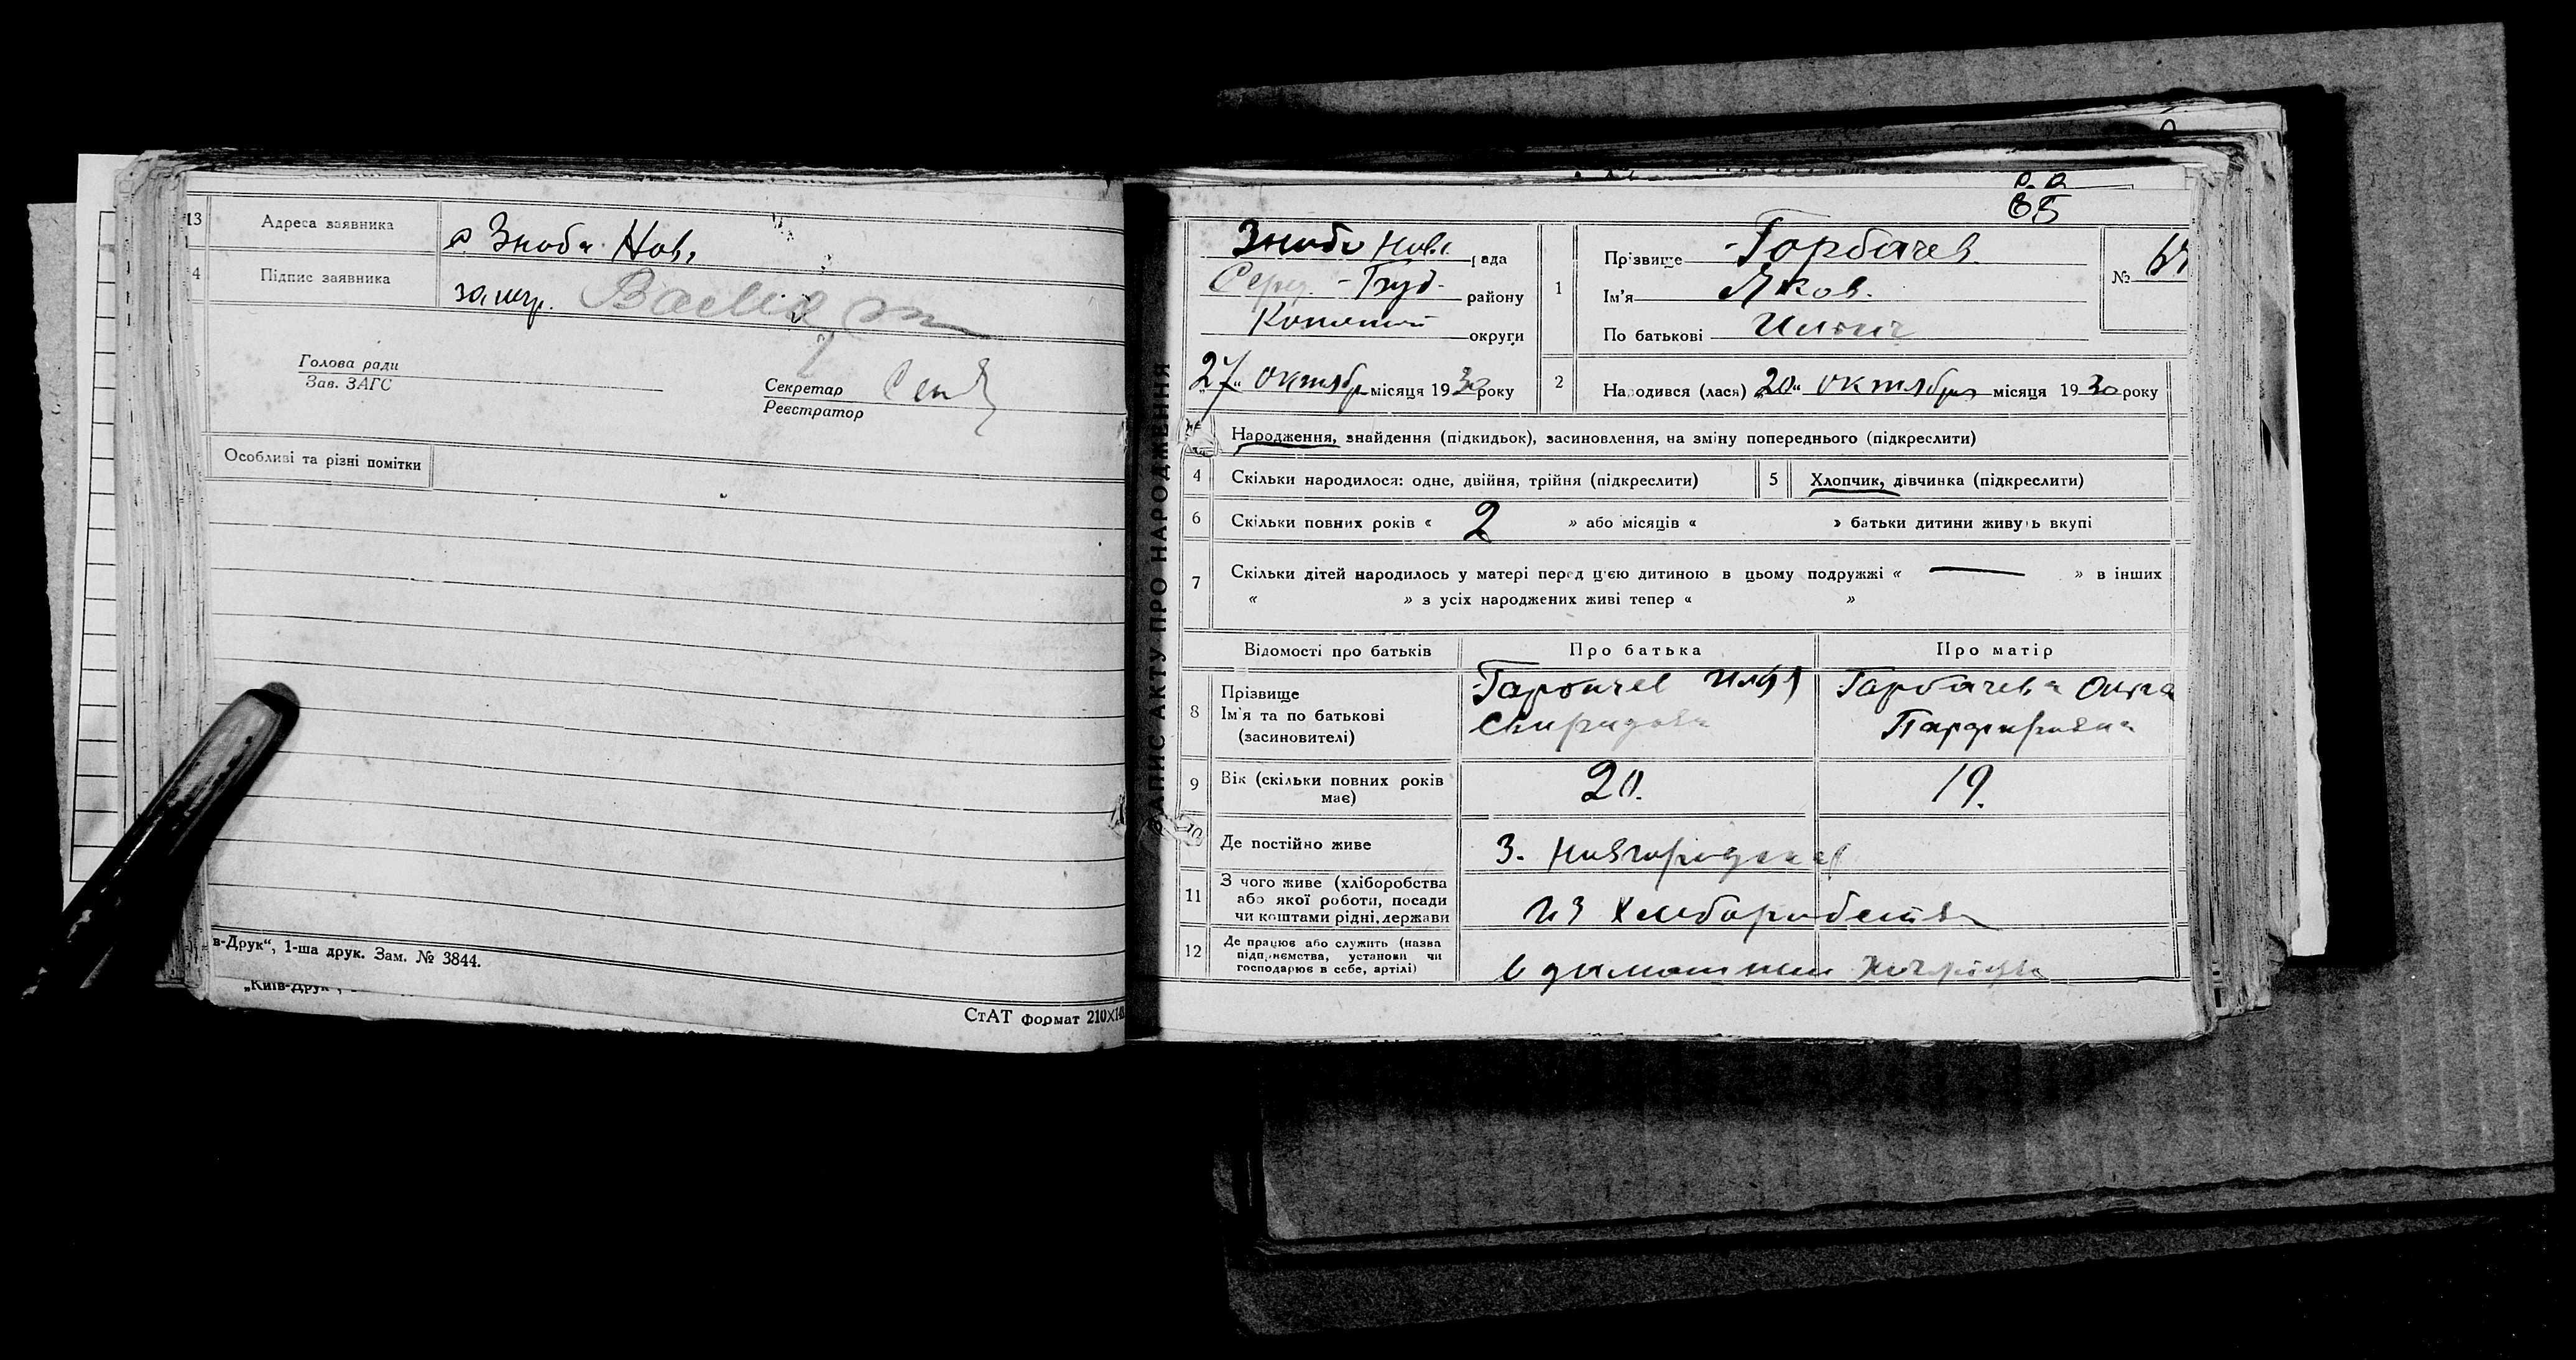 13 Адреса заявника с Зноба Нов.
4 Підпис заявника
Голова ради
Зав. ЗАГС
Секретар
Реєстратор
Особливі та різні помітки
в-Друк“, 1-ша друк. Зам. № 3844.
„Київ-Друк“,
СтАТ формат 210×
ЗАПИС АКТУ ПРО НАРОДЖЕННЯ
85
Зноб Новг. рада
Серед.-Буд. району
округи
27 октябр місяця 1930 року
1 Прізвище Горбачев
Ім'я Яков.
По батькові Ильич
№
2 Народився (лася) „20“ октября місяця 1930 року
Народження, знайдення (підкидьок), засиновлення, на зміну попереднього (підкреслити)
4 Скільки народилося: одне, двійня, трійня (підкреслити)
5 Хлопчик, дівчинка (підкреслити)
6 Скільки повних років « 2 » або місяців « » батьки дитини живуть вкупі
7 Скільки дітей народилось у матері перед цією дитиною в цьому подружжі « — » в інших
« » з усіх народжених живі тепер « »
Відомості про батьків Про батька Про матір
8 Прізвище
Ім'я та по батькові
(засиновителі)
Горбачев Илья
Спиридонов
Горбачева Ольга
Парфирьевна
9 Вік (скільки повних років
має)
20. 19.
10 Де постійно живе З. Новгородская
11 З чого живе (хліборобства
або якої роботи, посади
чи коштами рідні, держави
из хлеборобства
12 Де працює або служить (назва
підприємства, установи чи
господарює в себе, артілі)
в домашнем